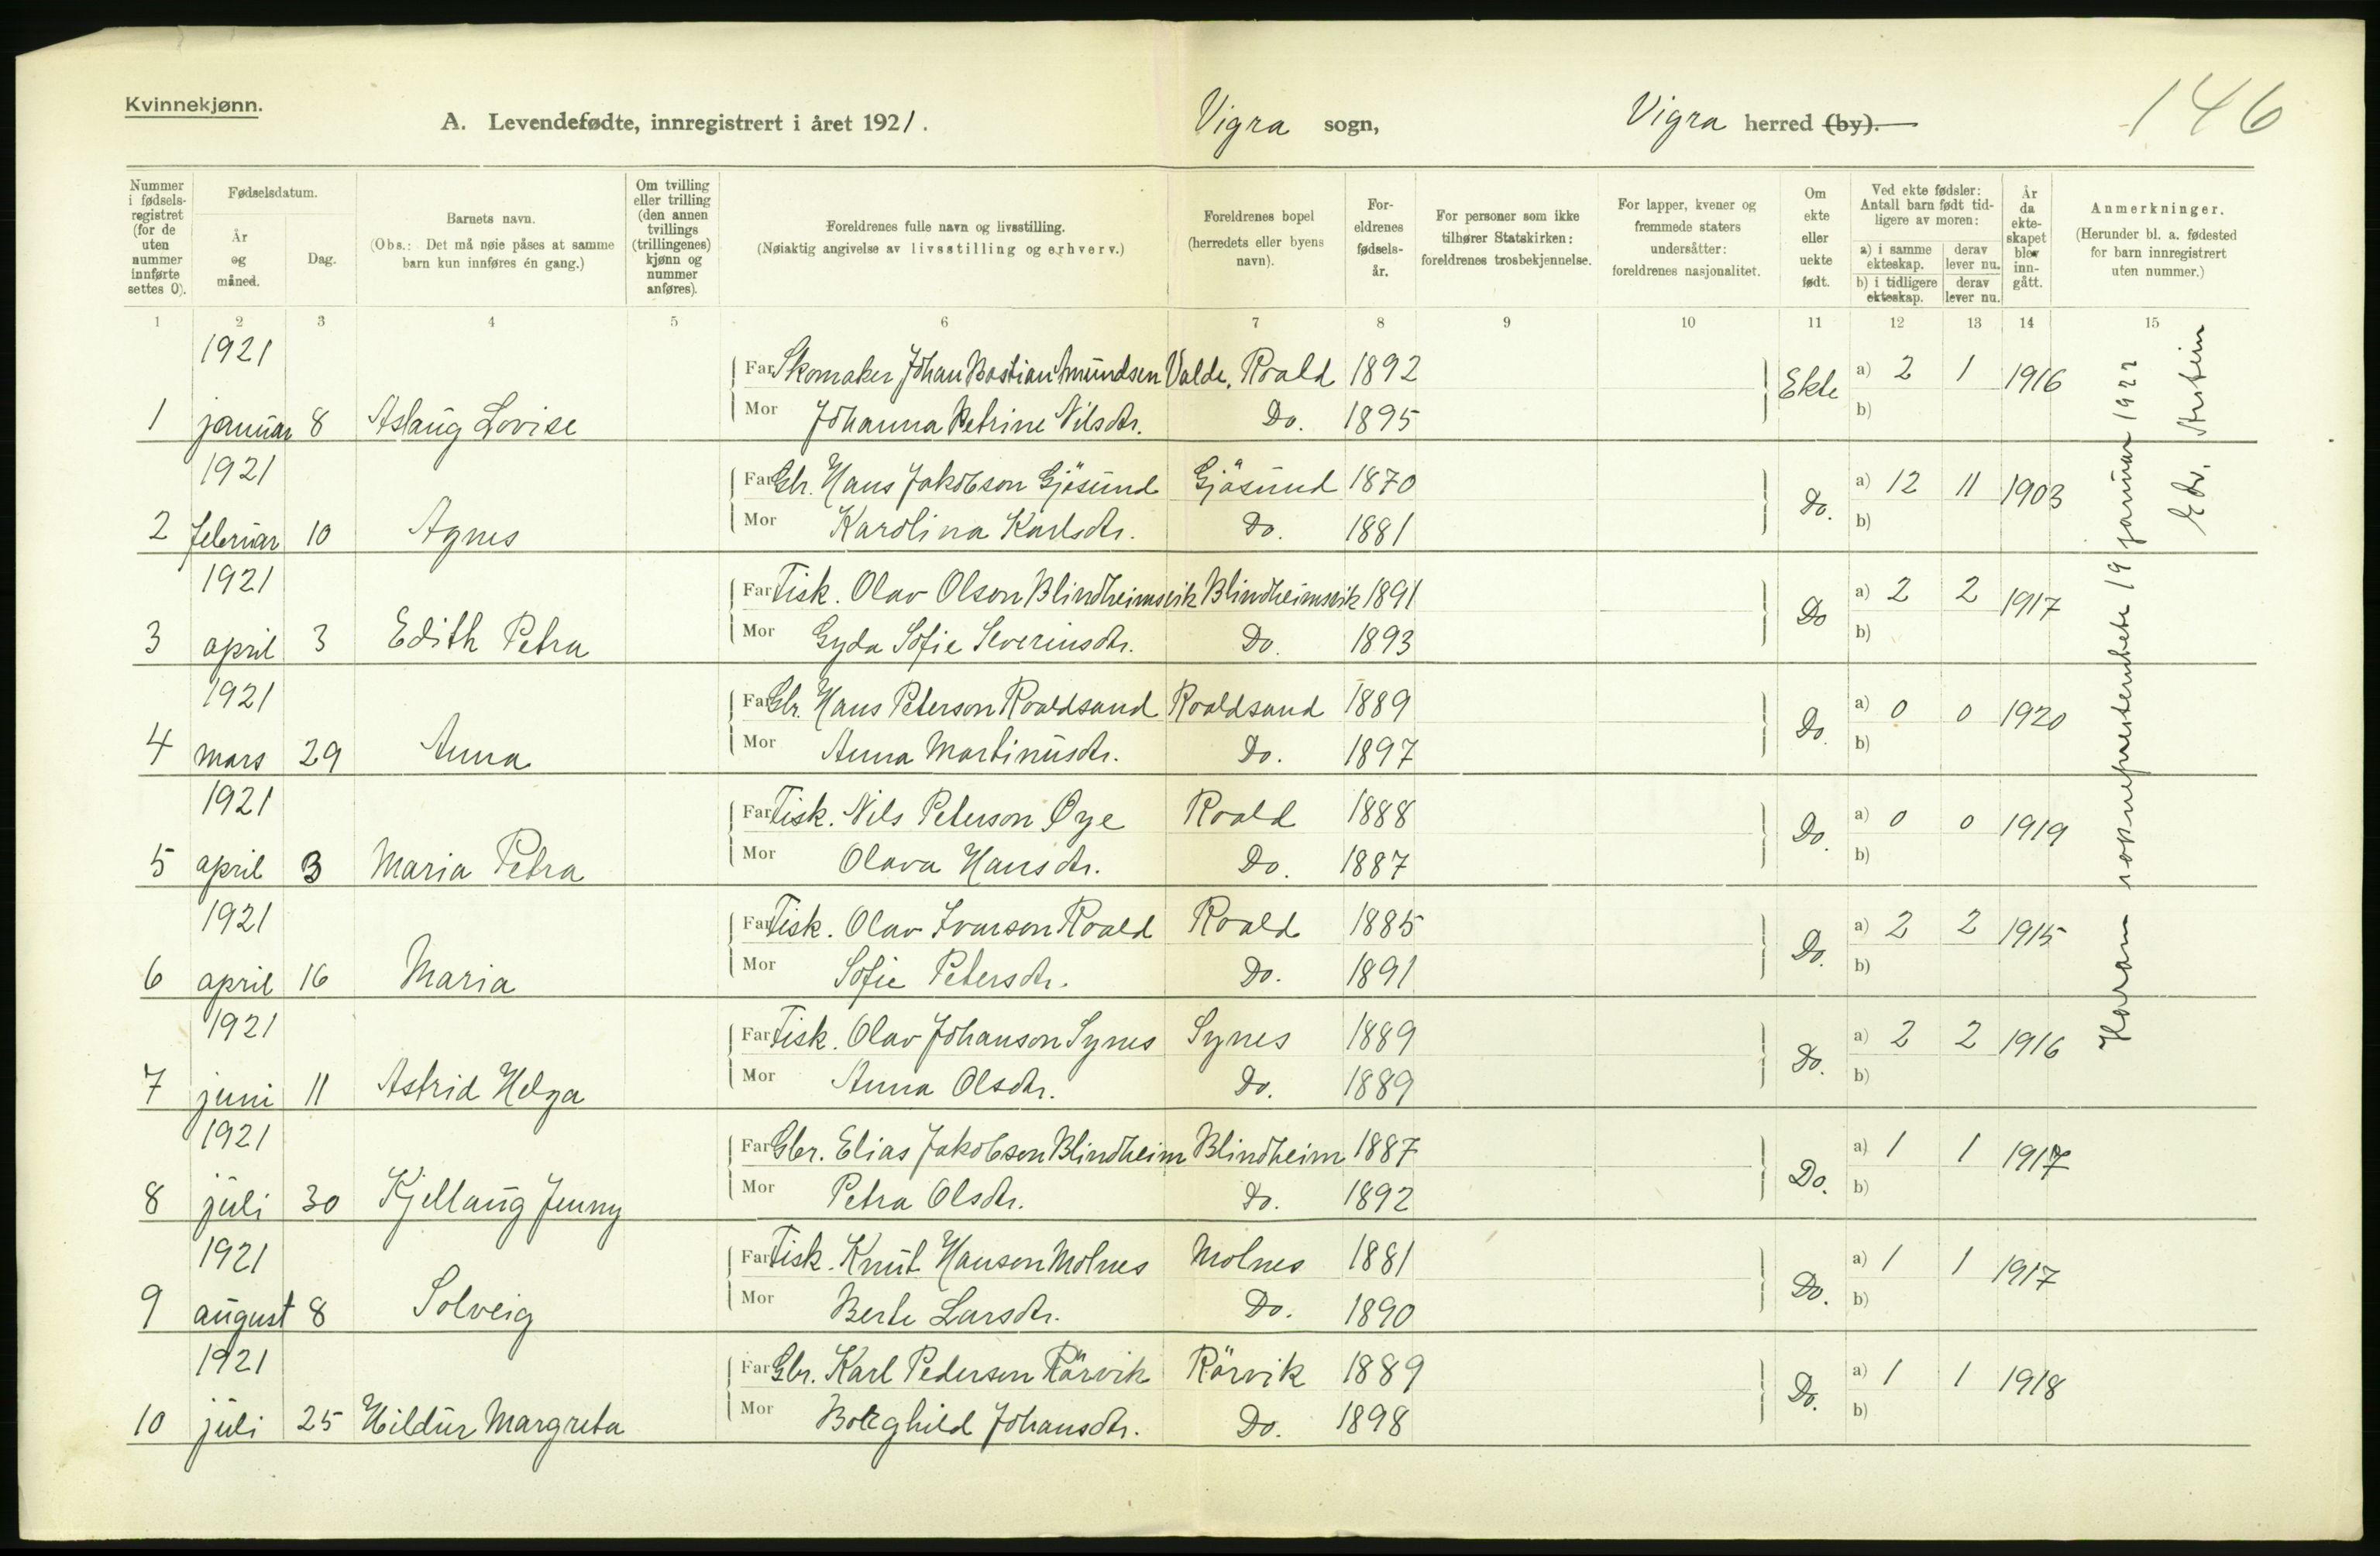 Kvinnekjønn.
A. Levendefødte, innregistrert i året 1921.
Vigra sogn,
Vigra herred (by).
146
Nummer i fødselsregistret (for de uten nummer innførte settes 0).
Fødselsdatum.
År og måned.
Dag.
Barnets navn.
(Obs.: Det må nøie påses at samme barn kun innføres én gang.)
Om tvilling eller trilling (den annen tvillings (trillingenes) kjønn og nummer anføres).
Foreldrenes fulle navn og livsstilling.
(Nøiaktig angivelse av livsstilling og erhverv.)
Foreldrenes bopel (herredets eller byens navn).
Foreldrenes fødselsår.
For personer som ikke tilhører Statskirken: foreldrenes trosbekjennelse.
For lapper, kvener og fremmede staters undersåtter: foreldrenes nasjonalitet.
Om ekte eller uekte født.
Ved ekte fødsler: Antall barn født tidligere av moren:
a) i samme ekteskap. derav lever nu.
b) i tidligere ekteskap. derav lever nu.
År da ekteskapet blev inngått.
Anmerkninger.
(Herunder bl. a. fødested for barn innregistrert uten nummer.)
1 2 3 4 5 6 7 8 9 10 11 12 13 14 15
1921
Far Skomaker Johan Bastian Amundsen Valde, Roald 1892 Ekte a) 2 1 1916
1 januar 8 Aslaug Lovise Mor Johanna Petrine Nilsdtr. Do. 1895 b)
1921
Far Gbr. Hans Jakobson Gjøsund Gjøsund 1870 Do. a) 12 11 1903
2 februar 10 Agnes Mor Karolina Karlsdtr. Do. 1881 b)
1921
Far Fisk. Olav Olson Blindheimsvik Blindheimsvik 1891 Do a) 2 2 1917
3 april 3 Edith Petra Mor Gyda Sofie Severinsdtr. Do. 1893 b)
1921
Far Gbr. Hans Peterson Roaldsand Roaldsand 1889 Do. a) 0 0 1920
4 mars 29 Anna Mor Anna Martinusdtr. Do. 1897 b)
1921
Far Fisk. Nils Peterson Øye Roald 1888 Do. a) 0 0 1919
5 april 3 Maria Petra Mor Olava Hansdtr. Do. 1887 b)
1921
Far Fisk. Olav Ivarson Roald Roald 1885 Do. a) 2 2 1915
6 april 16 Maria Mor Sofie Petersdtr. Do. 1891 b)
1921
Far Fisk. Olav Johanson Synes Synes 1889 Do. a) 2 2 1916
7 juni 11 Astrid Helga Mor Anna Olsdtr. Do. 1889 b)
1921
Far Gbr. Elias Jakobson Blindheim Blindheim 1887 Do. a) 1 1 1917
8 juli 30 Kjellaug Jenny Mor Petra Olsdtr. Do. 1892 b)
1921
Far Fisk. Knut Hanson Molnes Molnes 1881 Do. a) 1 1 1917
9 august 8 Solveig Mor Berte Larsdtr. Do. 1890 b)
1921
Far Gbr. Karl Pederson Rørvik Rörvik 1889 Do. a) 1 1 1918
10 juli 25 Hildur Margreta Mor Borghild Johansdtr. Do. 1898 b)
Haram soknepresterembete 19 januar 1922